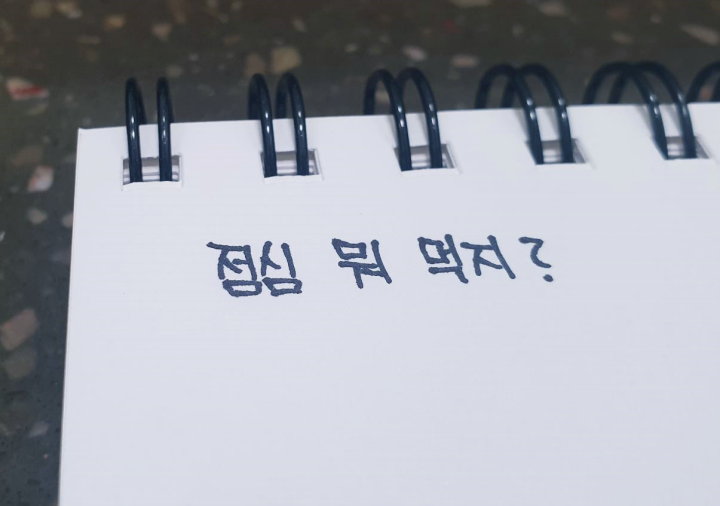 점심 뭐 먹지?